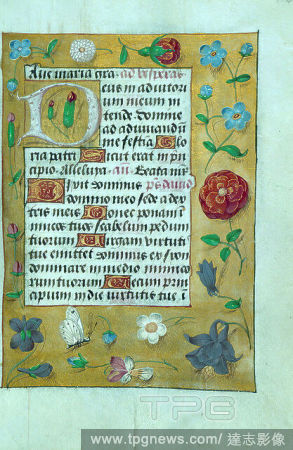 Ave maria gra. ad vesperas
Deus in adiutoriu
um meum in
tende domine
ad adiuvandū
me festina
ria patri Sicut erat in prin
cipio. Alleluya. an. Beata
Dixit dominus
domino meo sede a dex
tris meis Donec ponam i
micos tuos scabellum pedum
tuorum Virgam virtutis
tue emittet dominus ex syon
dominare in medio inimico
rum tuorum Tecum prin
cipium in die virtutis tue
TPG
www.tpgnews.com / 達志影像